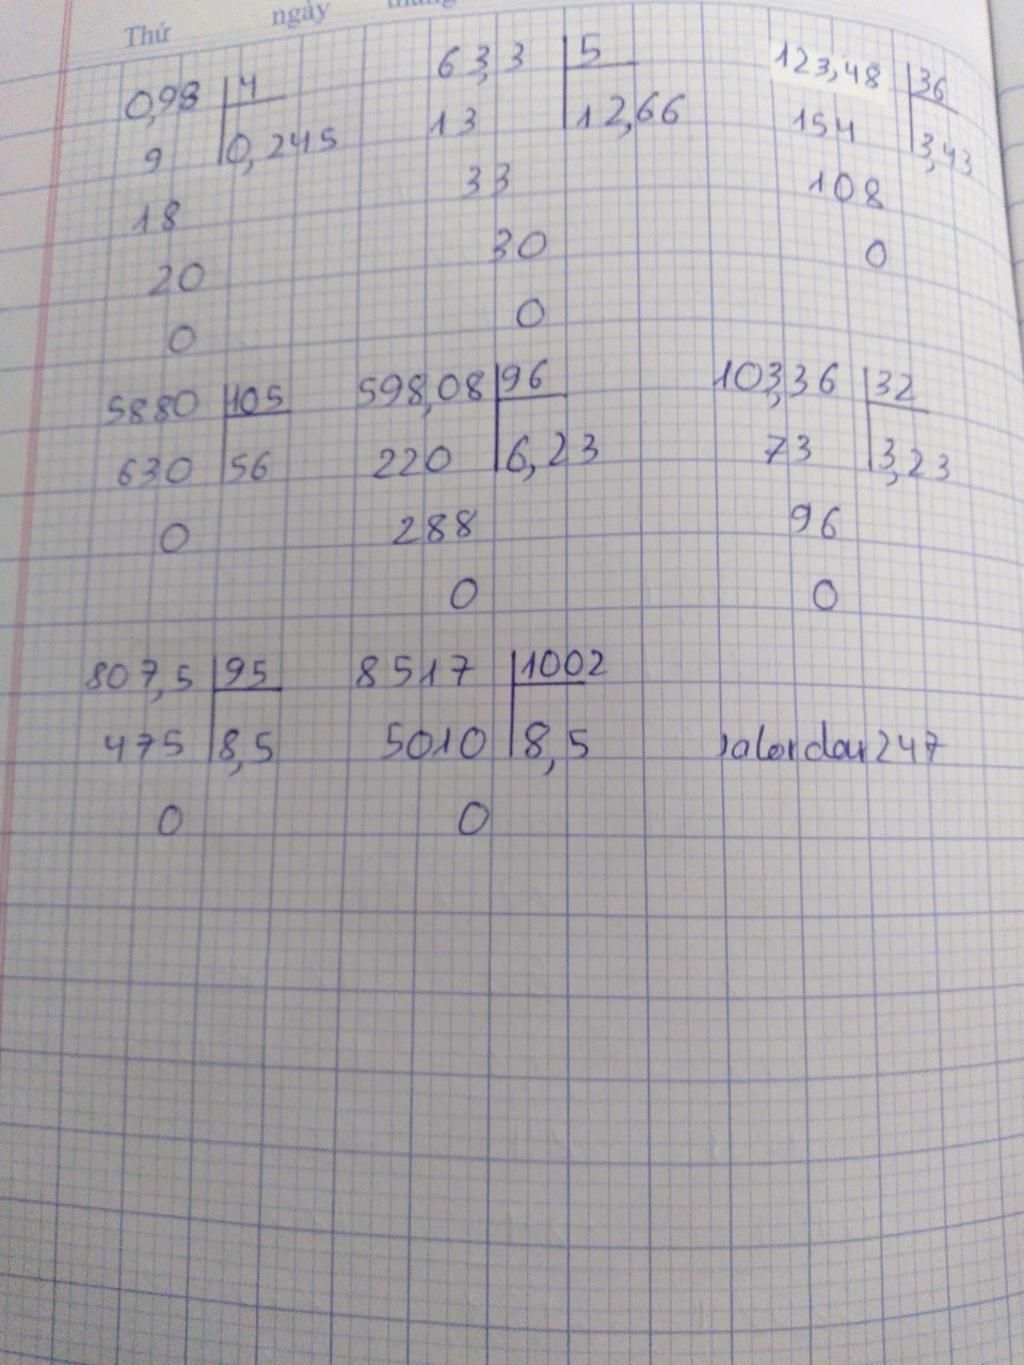 Thứ ngày tháng
0,98 4 63,3 5 123,48 36
9 0,245 13 12,66 154 3,43
18 33 108
20 30 0
0 0
5880 105 598,08 96 103,36 32
630 56 220 6,23 73 3,23
0 288 96
0 0
807,5 95 8517 1002
475 8,5 5010 8,5 247
0 0